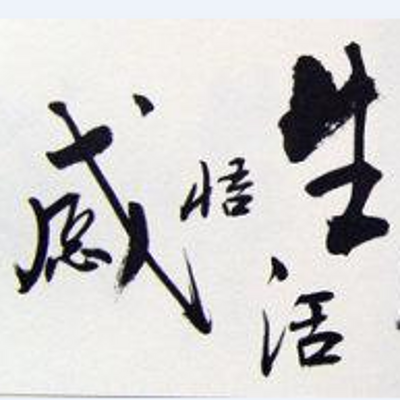 感悟
生活